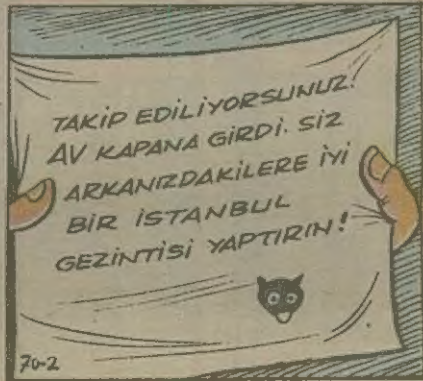 TAKİP EDİLİYORSUNUZ!
AV KAPANA GİRDİ. SİZ
ARKANIZDAKİLERE İYİ
BİR İSTANBUL
GEZİNTİSİ YAPTIRIN!
70-2